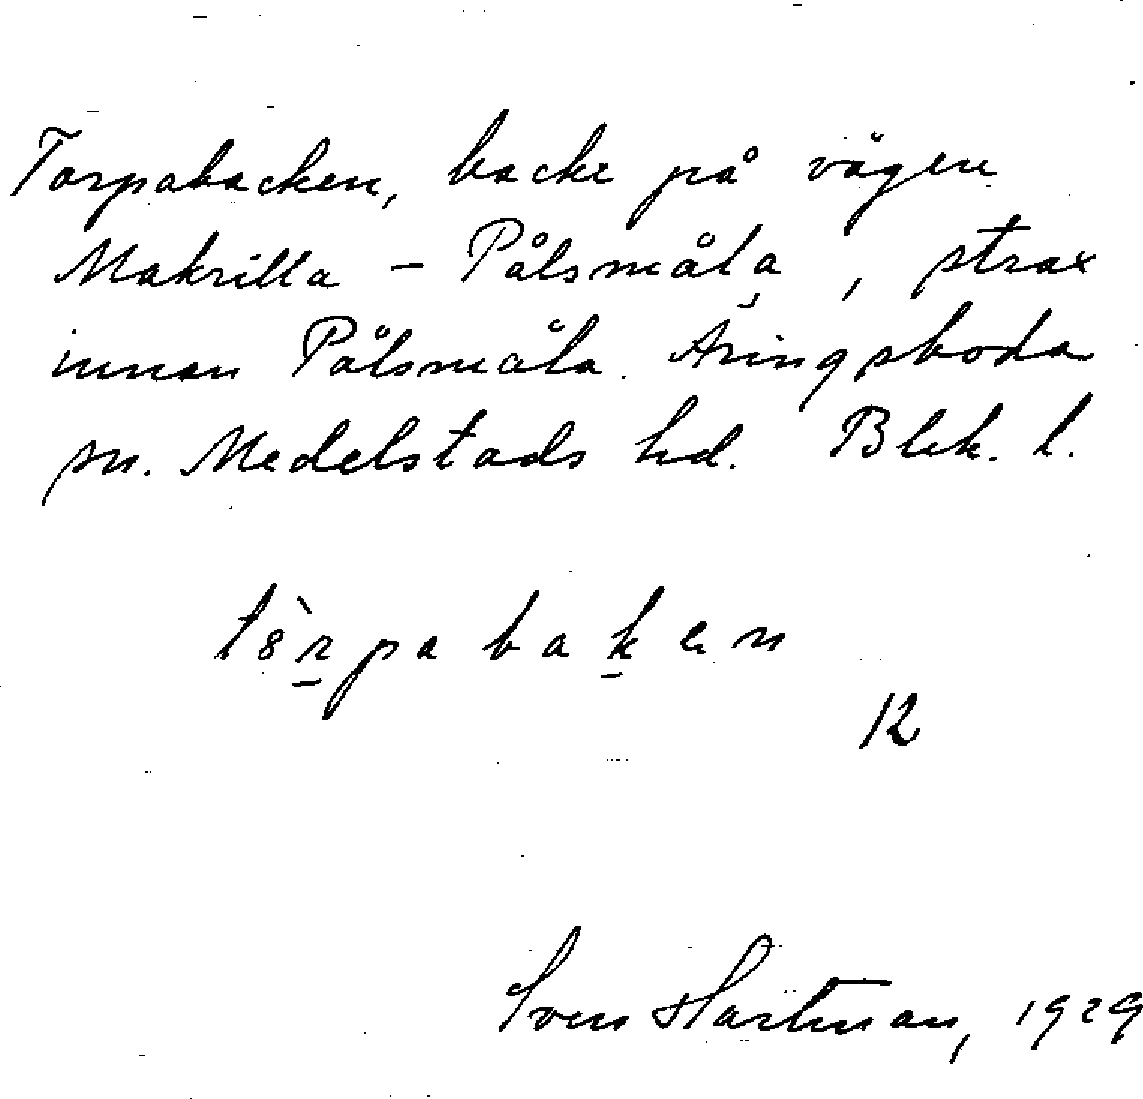 Torpabacken, backe på vägen
Makrilla - Pålsmåla, strax
innan Pålsmåla. Åringsboda
sn. Medelstads hd. Blek. l.
12
Sven Hartman, 1929